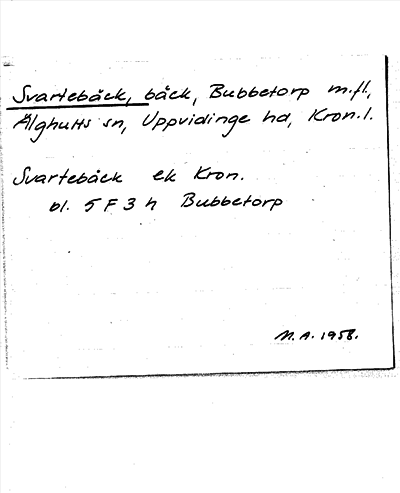 Svartebäck, bäck, Bubbetorp m.fl.,
Älghults sn, Uppvidinge hd, Kron.l.
Svartebäck ek Kron.
bl. 5 F 3 h Bubbetorp
M.A. 1958.